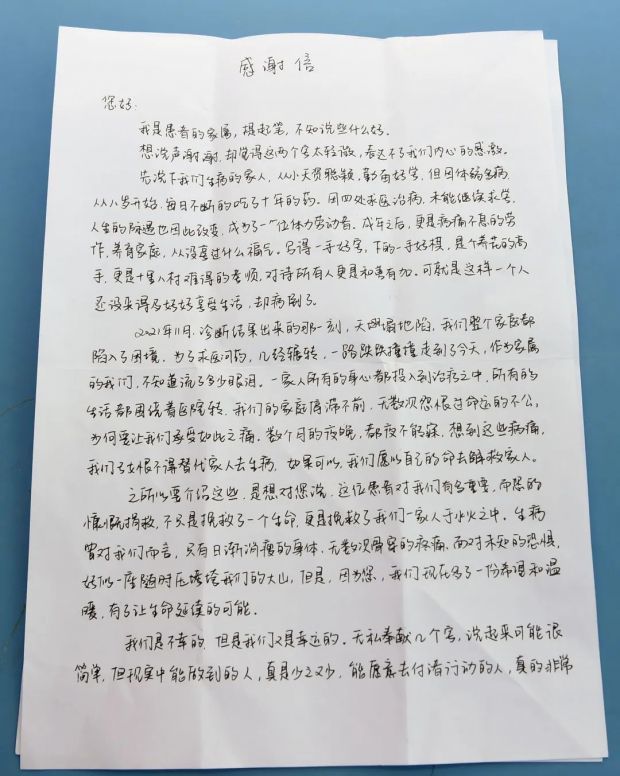 感谢信
您好:
我是患者的家属,提起笔,不知说些什么好。
想说声谢谢,却觉得这两个字太轻微,表达不了我们内心的感激。
先说下我们生病的家人,从小天资聪颖,勤奋好学,但因体弱多病,
从八岁开始,每日不断的吃了十年的药。因四处求医治病,未能继续求学,
人生的际遇也因此改变,成为了一位体力劳动者。成年之后,更是病痛不息的劳
作,养育家庭,从没享过什么福气。写得一手好字,下的一手好棋,是个养花的高
手,更是十里八村难得的孝顺,对待所有人更是和善有加。可就是这样一个人
还没来得及好好享受生活,却病倒了。
2021年11月,诊断结果出来的那一刻,天崩塌地陷,我们整个家庭都
陷入了困境,为了求医问药,几经辗转,一路跌跌撞撞走到了今天,作为家属
的我们,不知道流了多少眼泪。一家人所有的身心都投入到治疗之中,所有的
生活都围绕着医院转,我们的家庭停滞不前,无数次怨恨过命运的不公,
为何要让我们承受如此之痛。数个月的夜晚,都夜不能寐,想到这些病痛,
我们恨不得替代家人去生病,如果可以,我们愿以自己的命去解救家人。
之所以要介绍这些,是想对您说,这位患者对我们有多重要,而您的
慷慨捐救,不只是挽救了一个生命,更是挽救了我们一家人于水火之中。生病
曾对我们而言,只有日渐消瘦的身体,无数次骨穿的疼痛,面对未知的恐惧,
好似一座随时压垮我们的大山,但是,因为您,我们现在多了一份希望和温
暖,有了让生命延续的可能。
我们是不幸的,但是我们又是幸运的。无私奉献几个字,说起来可能很
简单,但现实中能做到的人,真是少之又少,能愿意去付诸行动的人,真的非常